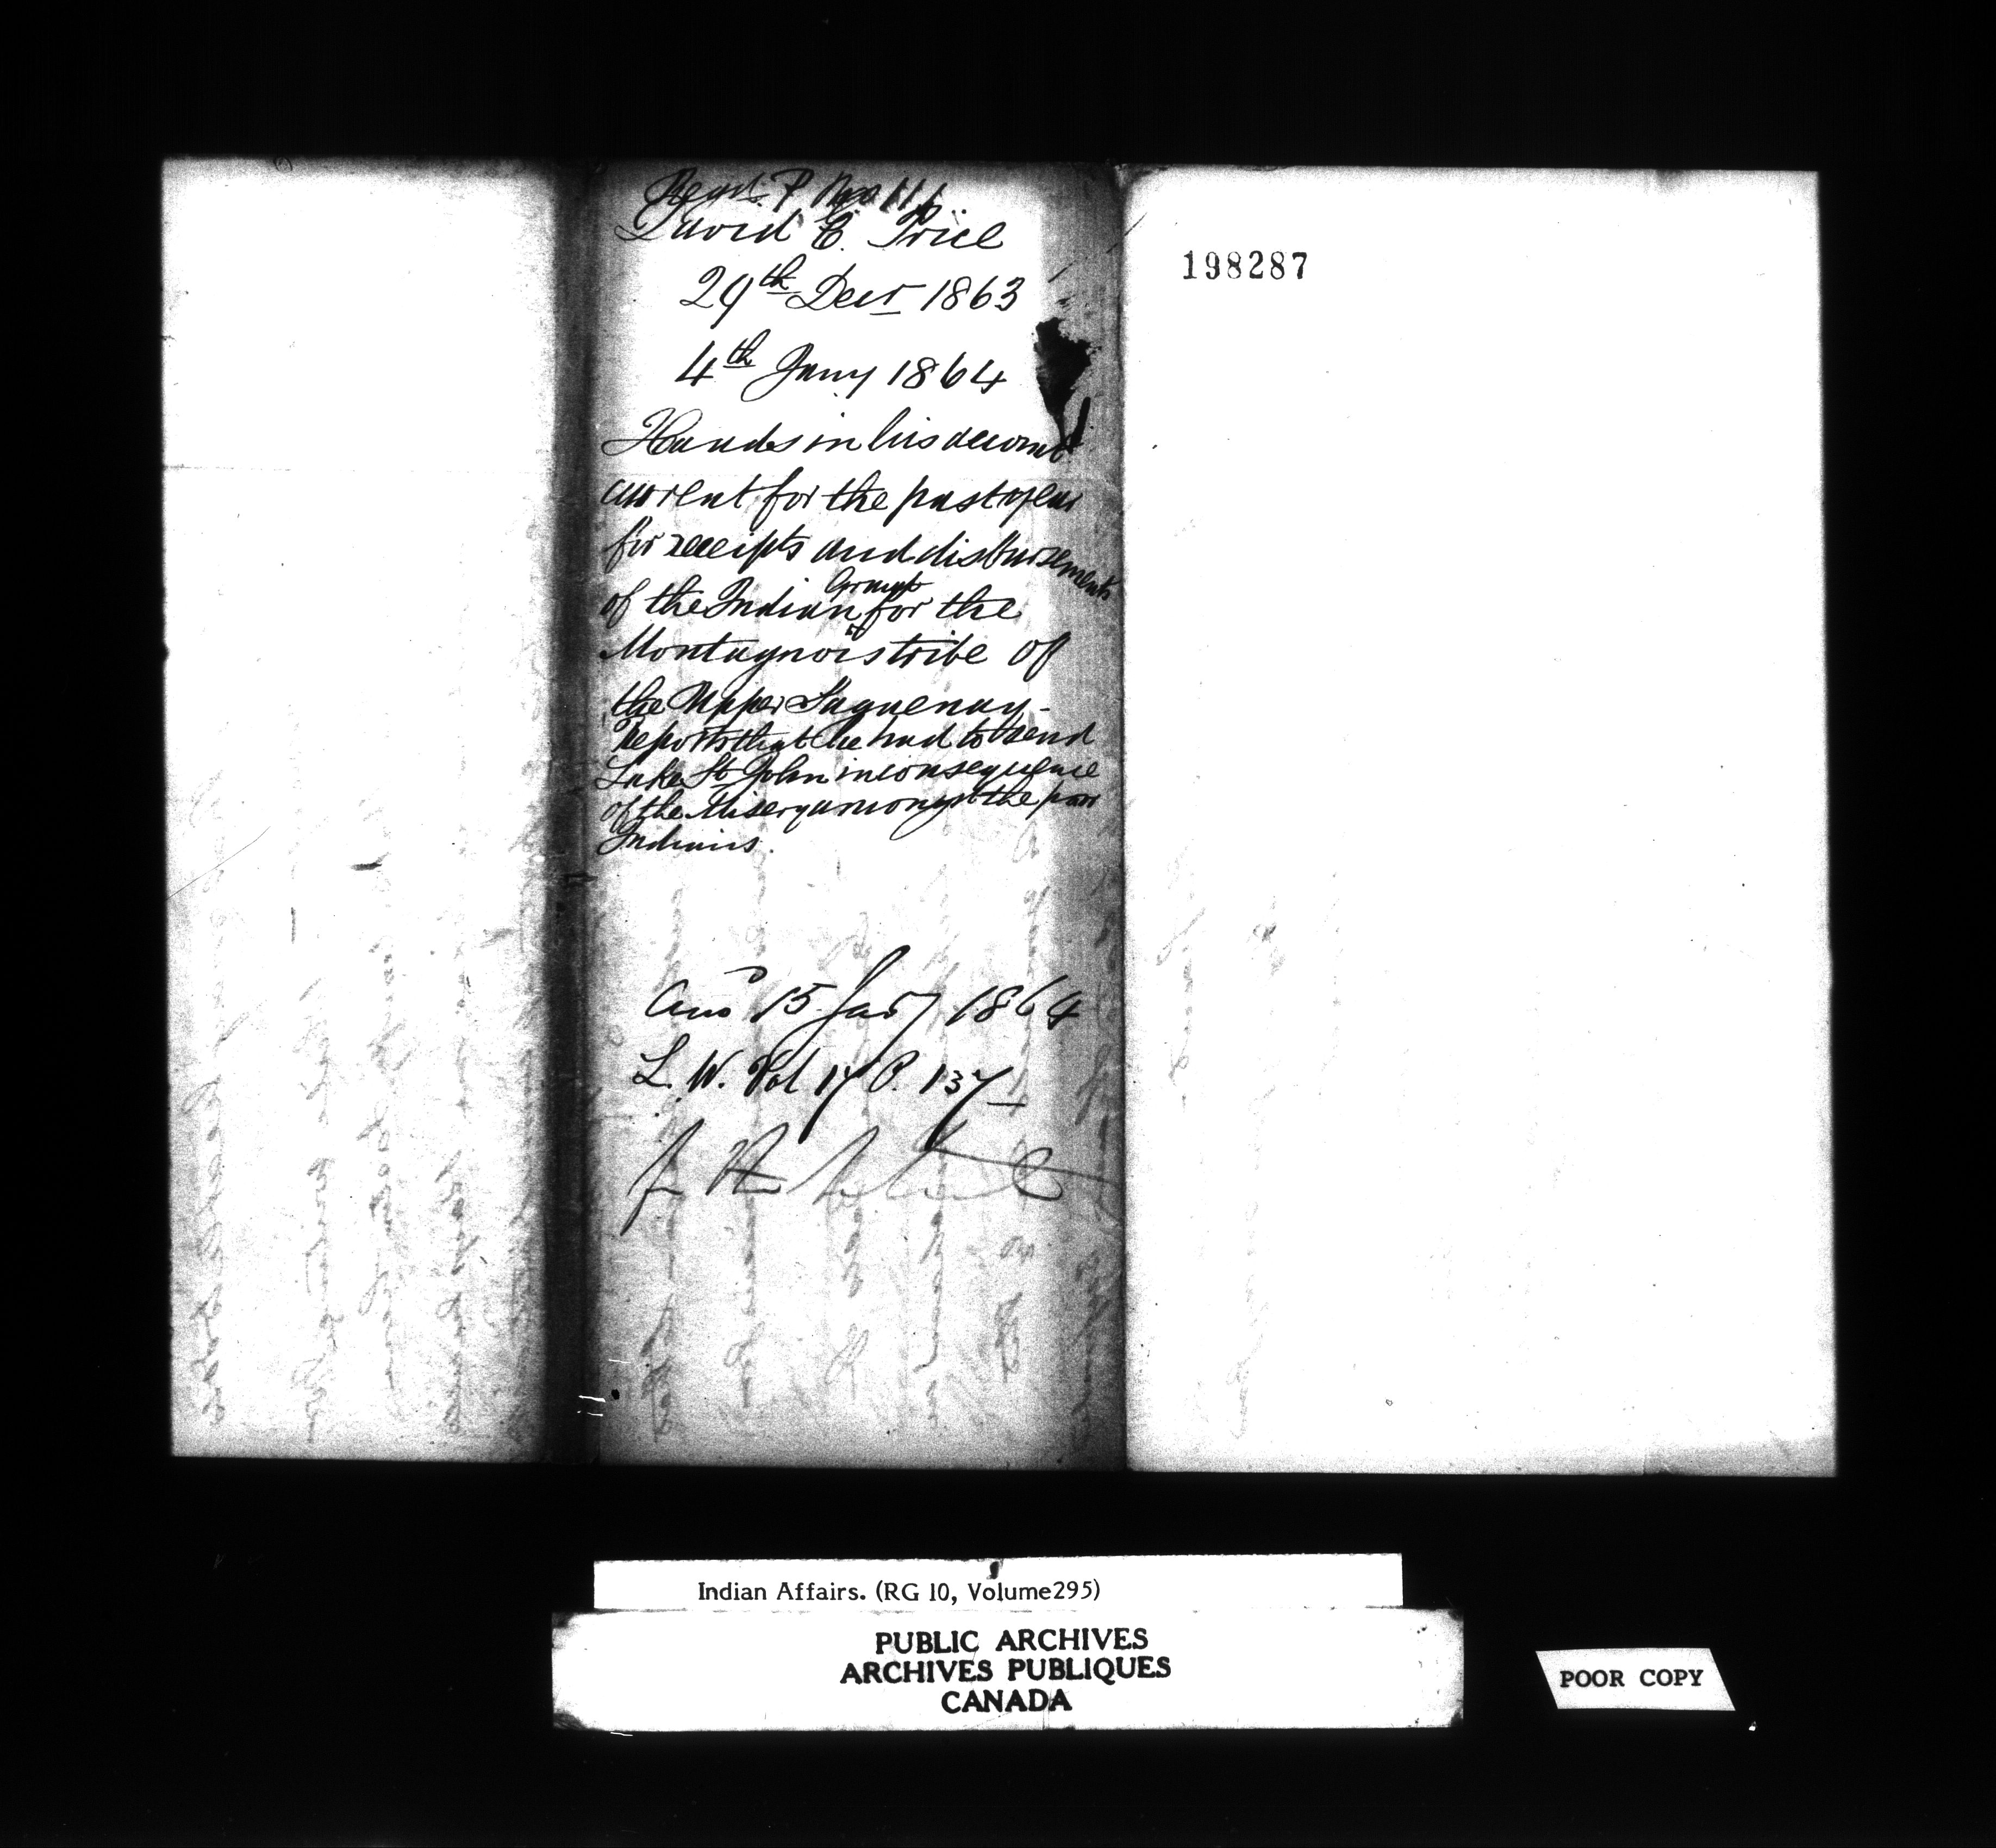 Regd. P No 111
David E. Price
29th Decr 1863
4th Jany 1864
Hands in his account
current for the past year
for receipts and disbursements
of the Indian Grant for the
Montagnois tribe of
the Upper Saguenay -
Reports that he had to send
Lake St John in consequence
of the Misery amongst the poor
Indians.
Ansd 15 Jany 1864
L. W. Vol 17 P. 137
198287
Indian Affairs. (RG 10, Volume295)
PUBLIC ARCHIVES
ARCHIVES PUBLIQUES
CANADA
POOR COPY